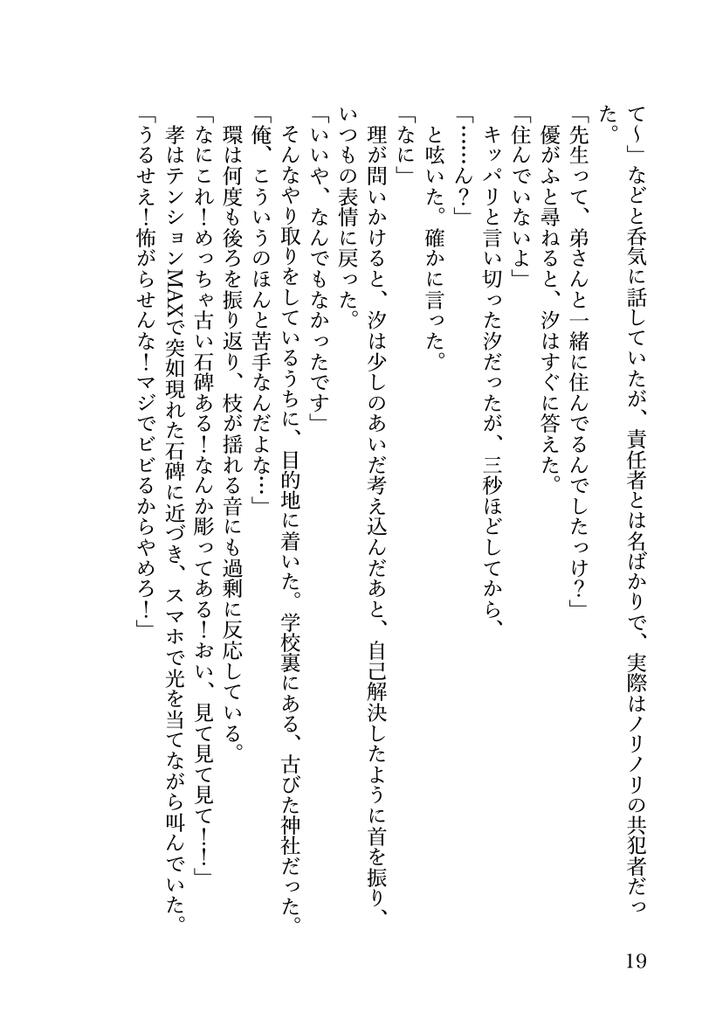 て～」などと呑気に話していたが、責任者とは名ばかりで、実際はノリノリの共犯者だっ
た。
「先生って、弟さんと一緒に住んでるんでしたっけ？」
優がふと尋ねると、汐はすぐに答えた。
「住んでいないよ」
キッパリと言い切った汐だったが、三秒ほどしてから、
「……ん？」
と呟いた。確かに言った。
「なに」
理が問いかけると、汐は少しのあいだ考え込んだあと、自己解決したように首を振り、
いつもの表情に戻った。
「いいや、なんでもなかったです」
そんなやり取りをしているうちに、目的地に着いた。学校裏にある、古びた神社だった。
「俺、こういうのほんと苦手なんだよな…」
環は何度も後ろを振り返り、枝が揺れる音にも過剰に反応している。
「なにこれ！めっちゃ古い石碑ある！なんか彫ってある！おい、見て見て見て！！」
孝はテンションMAXで突如現れた石碑に近づき、スマホで光を当てながら叫んでいた。
「うるせえ！怖がらせんな！マジでビビるからやめろ！」
19